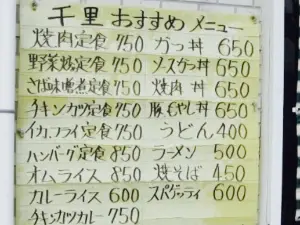 千里 おすすめ メニュー
焼肉定食 750 かつ丼 650
野菜炒定食 750 ソースかつ丼 650
さば味噌煮定食 750 焼肉丼 650
チキンカツ定食 750 豚もやし丼 650
イカフライ定食 750 うどん 400
ハンバーグ定食 850 ラーメン 500
オムライス 850 焼そば 450
カレーライス 600 スパゲッティ 600
チキンカツカレー 750